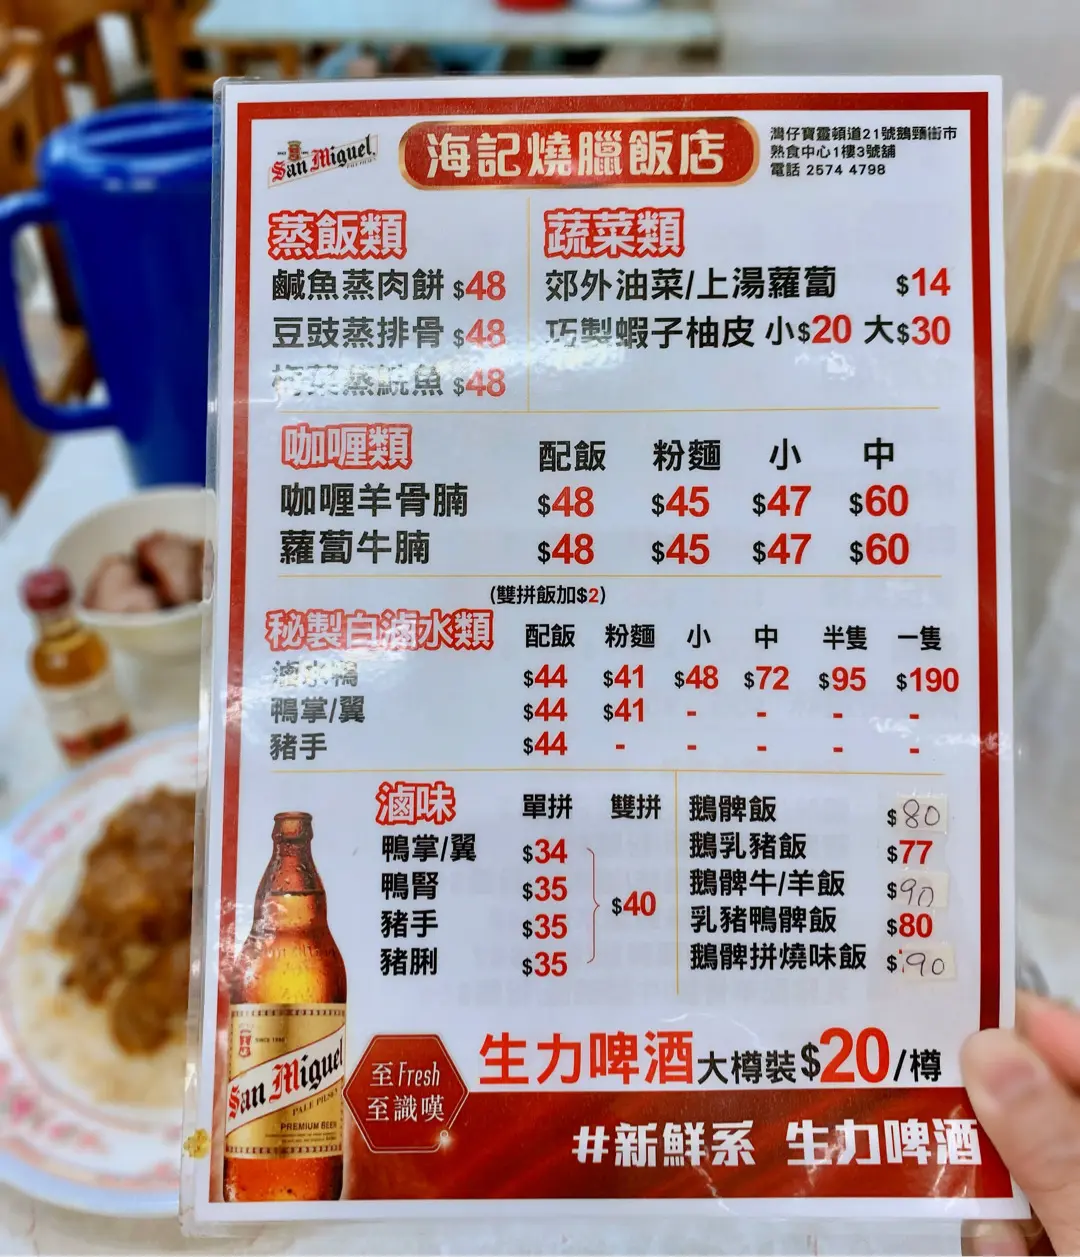 San Miguel
海記燒臘飯店
灣仔寶靈頓道21號鵝頸街市
熟食中心1樓3號舖
電話 2574 4798
蒸飯類
鹹魚蒸肉餅 $48
豆豉蒸排骨 $48
梅菜蒸鯇魚 $48
蔬菜類
郊外油菜/上湯蘿蔔 $14
巧製蝦子柚皮 小$20 大$30
咖喱類 配飯 粉麵 小 中
咖喱羊骨腩 $48 $45 $47 $60
蘿蔔牛腩 $48 $45 $47 $60
(雙拼飯加$2)
秘製白滷水類 配飯 粉麵 小 中 半隻 一隻
滷水鴨 $44 $41 $48 $72 $95 $190
鴨掌/翼 $44 $41 - - - -
豬手 $44 - - - - -
滷味 單拼 雙拼
鴨掌/翼 $34
鴨腎 $35
豬手 $35
豬脷 $35
$40
鵝髀飯 $80
鵝乳豬飯 $77
鵝髀牛/羊飯 $90
乳豬鴨髀飯 $80
鵝髀拼燒味飯 $90
SINCE 1890
San Miguel
PALE PILSEN
PREMIUM BEER
至Fresh
至識嘆
生力啤酒大樽裝$20/樽
#新鮮系 生力啤酒